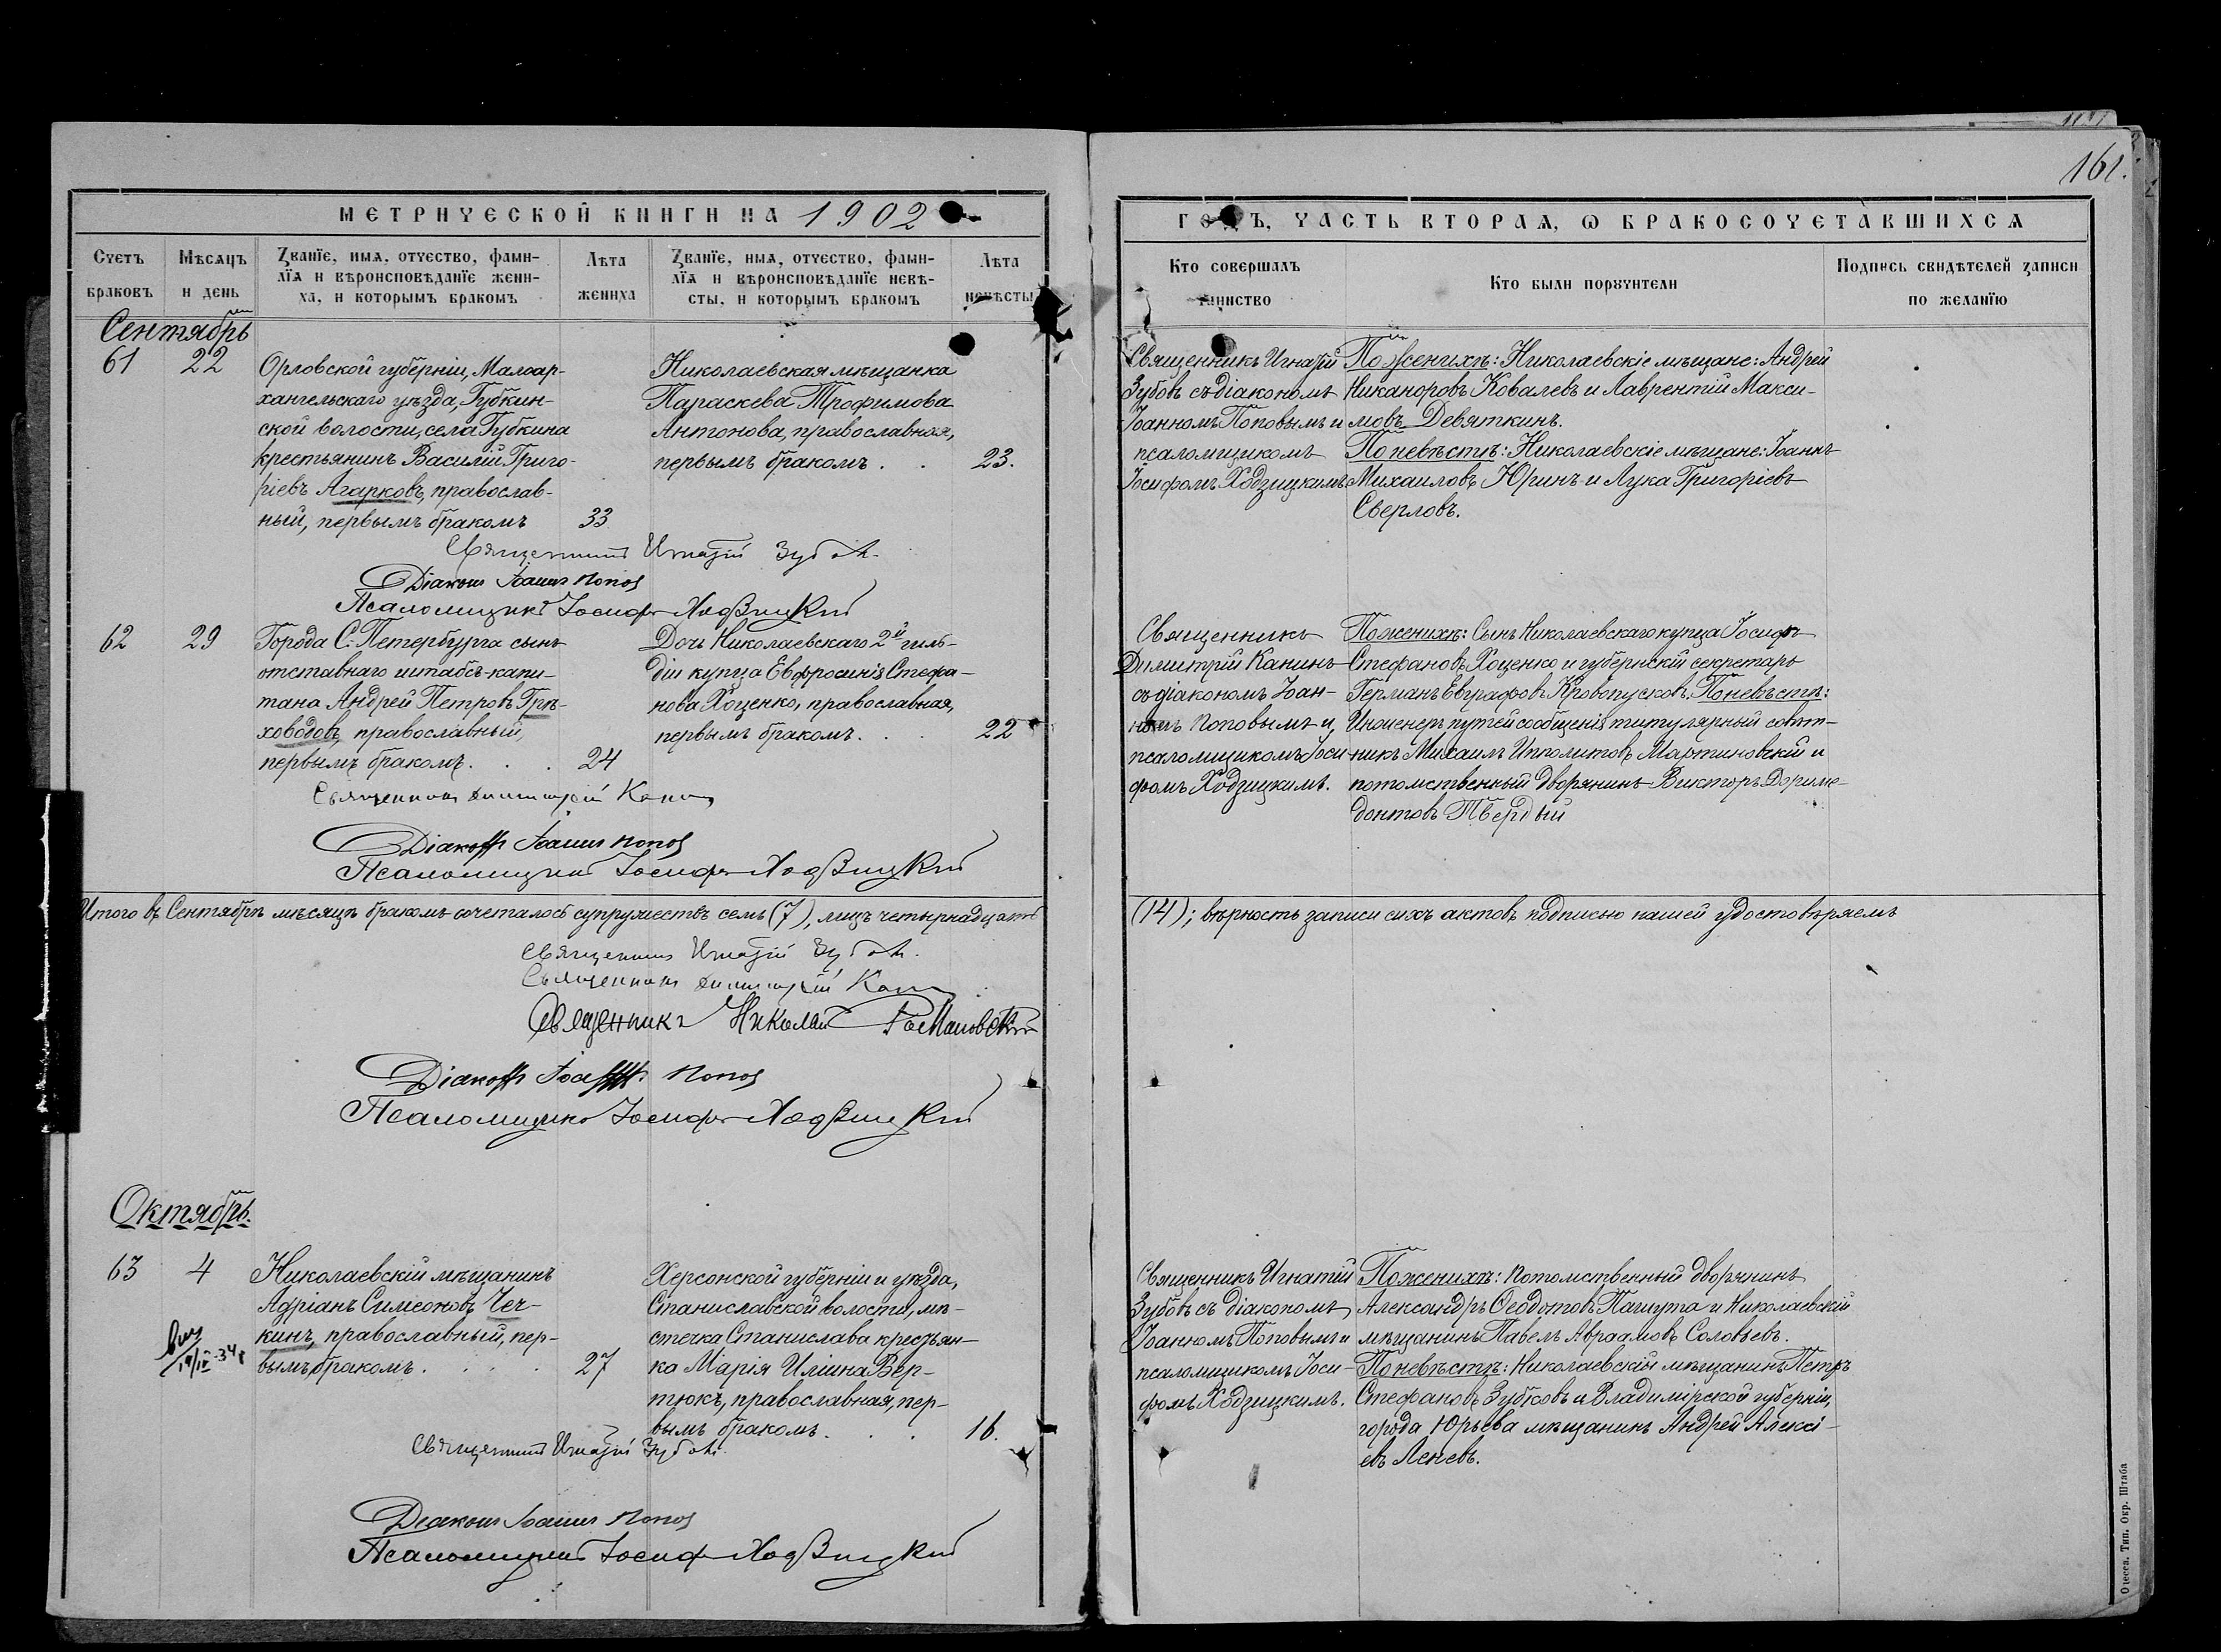 161.
МЕТРИЧЕСКОЙ КНИГИ НА 1902
ГОДЪ, ЧАСТЬ ВТОРАЯ, Ѡ БРАКОСОЧЕТАВШИХСЯ
Счетъ браковъ
Мѣсяцъ и день
Званїе, имя, отчество, фами-
лїя и вѣроисповѣданїе жени-
ха, и которымъ бракомъ
Лѣта жениха
Званїе, имя, отчество, фами-
лїя и вѣроисповѣданїе невѣ-
сты, и которымъ бракомъ
Лѣта невѣсты
Кто совершалъ таинство
Кто были порꙋчители
Подпись свидѣтелей записи
по желанїю
Сентябрь
61 22
Орловской губерніи, Малоар-
хангельскаго уѣзда, Губкин-
ской волости, села Губкина
крестьянинъ Василій Григо-
ріевъ Агарковъ, православ-
ный, первымъ бракомъ 33
Николаевская мѣщанка
Параскева Трофимова
Антонова, православная,
первымъ бракомъ . . 23.
Священникъ Игнатій
Зубовъ съ діакономъ
Іоанномъ Поповымъ и
псаломщикомъ
Іосифомъ Ходзицкимъ
По женихѣ: Николаевскіе мѣщане: Андрей
Никаноровъ Ковалевъ и Лаврентій Макси-
мовъ Девяткинъ.
По невѣстѣ: Николаевскіе мѣщане: Іоаннъ
Михаиловъ Юринъ и Лука Григоріевъ
Сверловъ.
Священникъ Игнатій Зубовъ.
Діаконъ Іоаннъ Поповъ
Псаломщикъ Іосифъ Ходзицкий
62 29
Города С.-Петербурга сынъ
отставнаго штабсъ-капи-
тана Андрей Петровъ Грѣ-
ховодовъ, православный,
первымъ бракомъ. . . 24
Дочь Николаевскаго 2й гиль-
діи купца Евфросинія Стефа-
нова Хоценко, православная,
первымъ бракомъ. . . 22
Священникъ
Димитрій Канинъ
съ діакономъ Іоан-
номъ Поповымъ и
псаломщикомъ Іоси-
фомъ Ходзицкимъ.
По женихѣ: Сынъ Николаевскаго купца Іосифъ
Стефановъ Хоценко и губернскій секретарь
Германъ Евграфовъ Кровопусковъ. По невѣстѣ:
Инженеръ путей сообщенія титулярный совѣт-
никъ Михаилъ Ипполитовъ Мартиновскій и
потомственный дворянинъ Викторъ Дориме-
донтовъ Твердый
Священникъ Димитрій Канинъ
Діаконъ Іоаннъ Поповъ
Псаломщикъ Іосифъ Ходзицкий
Итого въ Сентябрѣ мѣсяцѣ бракомъ сочеталось супружествъ семь (7), лицъ четырнадцать (14); вѣрность записи сихъ актовъ подписью нашей удостовѣряемъ
Священникъ Игнатій Зубовъ.
Священникъ Димитрій Канинъ
Священникъ Николай Романовский
Діаконъ Іоаннъ Поповъ
Псаломщикъ Іосифъ Ходзицкий
Октябрь.
63 4
Николаевскій мѣщанинъ
Адріанъ Симеоновъ Чеч-
кинъ, православный, пер-
вымъ бракомъ. . . . 27
Херсонской губерніи и уѣзда,
Станиславской волости, мѣ-
стечка Станислава крестьян-
ка Марія Иліина Вер-
тюкъ, православная, пер-
вымъ бракомъ . . . 16.
Священникъ Игнатій
Зубовъ съ діакономъ
Іоанномъ Поповымъ и
псаломщикомъ Іоси-
фомъ Ходзицкимъ.
По женихѣ: Потомственный дворянинъ
Александръ Ѳеодотовъ Пашута и Николаевскій
мѣщанинъ Павелъ Авраамовъ Соловьевъ.
По невѣстѣ: Николаевскій мѣщанинъ Петръ
Стефановъ Зубковъ и Владимірской губерніи,
города Юрьева мѣщанинъ Андрей Алексі-
евъ Леневъ.
Священникъ Игнатій Зубовъ.
Діаконъ Іоаннъ Поповъ
Псаломщикъ Іосифъ Ходзицкий
Одесса. Тип. Окр. Штаба